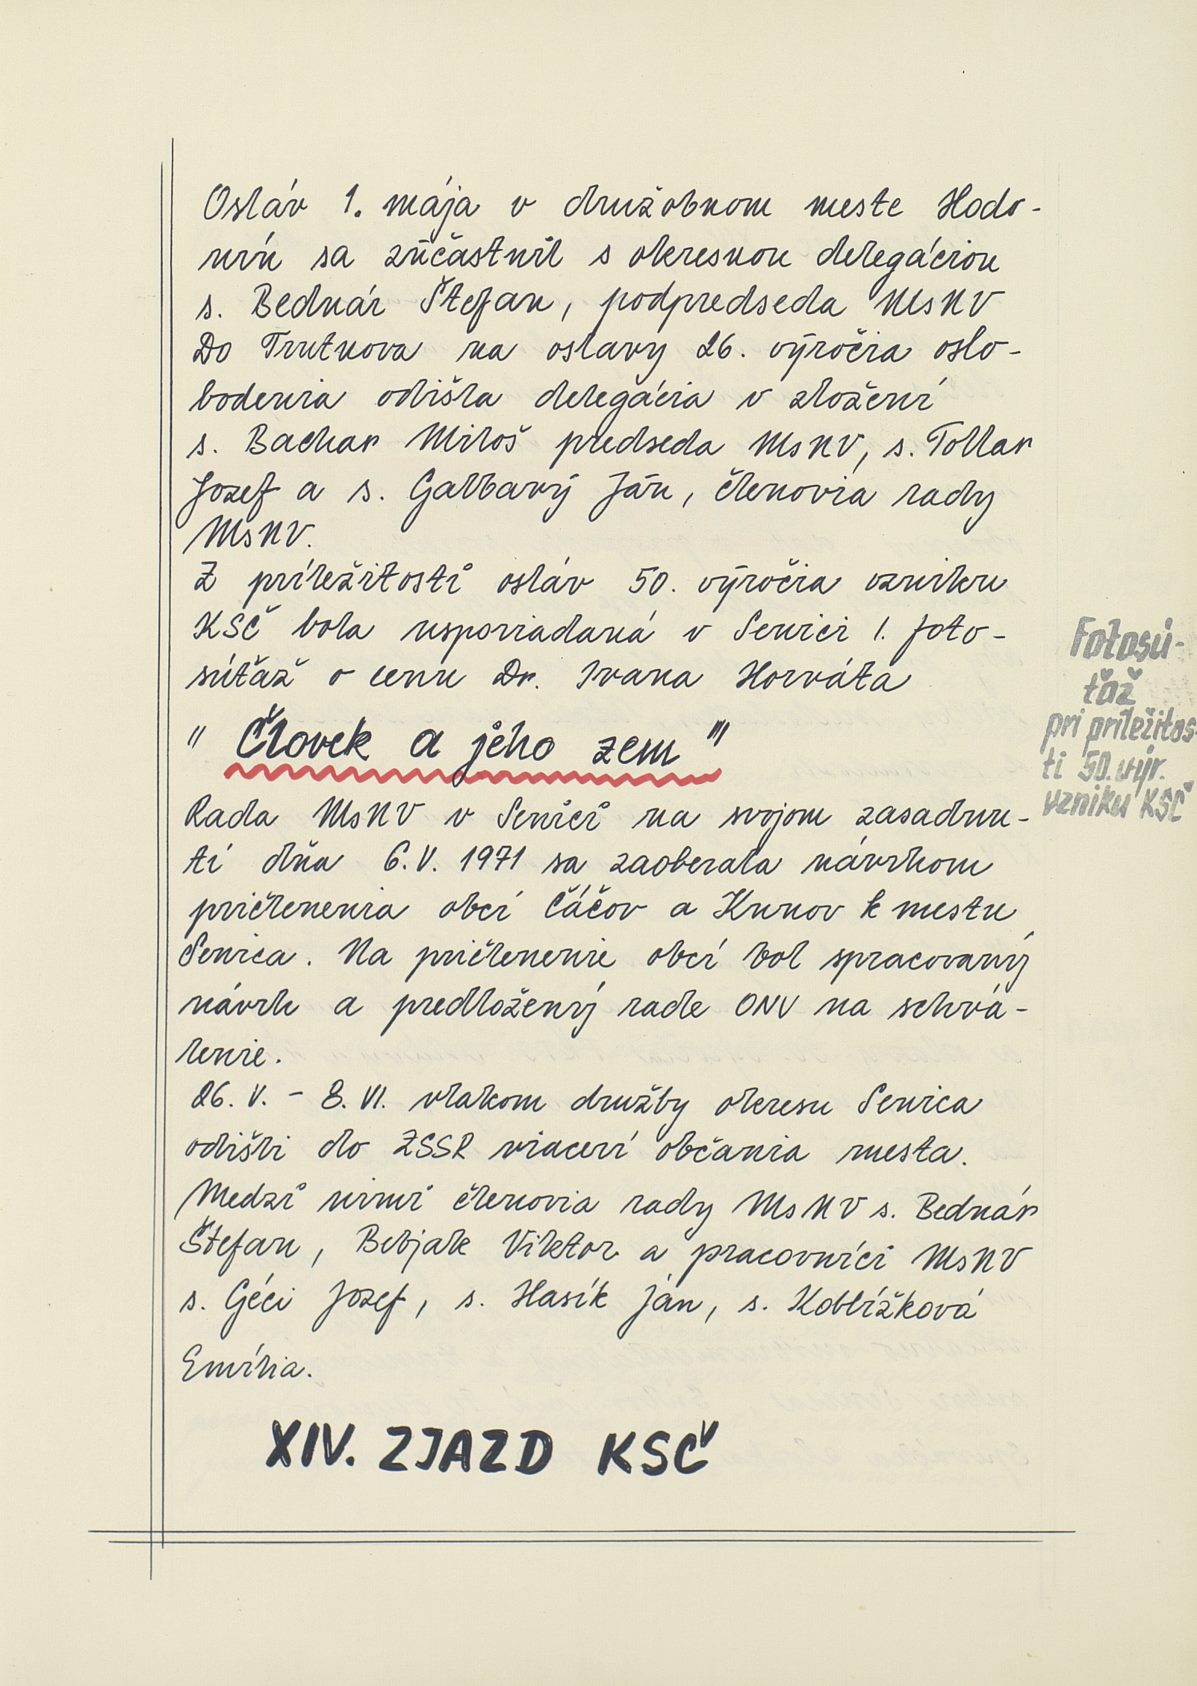 Osláv 1. mája v družobnom meste Hodo-
nín sa zúčastnil s okresnou delegáciou
s. Bednár Štefan, podpredseda MsNV
Do Trutnova na oslavy 26. výročia oslo-
bodenia odišla delegácia v zložení
s. Bachar Miloš predseda MsNV, s. Tollar
Jozef a s. Galbavý Ján, členovia rady
MsNV.
Z príležitosti osláv 50. výročia vzniku
KSČ bola usporiadaná v Senici 1. foto-
súťaž o cenu Dr. Ivana Horváta
" Človek a jeho zem "
Fotosú-
ťaž
pri príležitos-
ti 50. výr.
vzniku KSČ
Rada MsNV v Senici na svojom zasadnu-
tí dňa 6. V. 1971 sa zaoberala návrhom
pričlenenia obcí Čáčov a Kunov k mestu
Senica. Na pričlenenie obcí bol spracovaný
návrh a predložený rade ONV na schvá-
lenie.
26. V. - 8. VI. vlakom družby okresu Senica
odišli do ZSSR viacerí občania mesta.
Medzi nimi členovia rady MsNV s. Bednár
Štefan, Bebjak Viktor a pracovníci MsNV
s. Géci Jozef, s. Hasík Ján, s. Koblížková
Emília.
XIV. ZJAZD KSČ